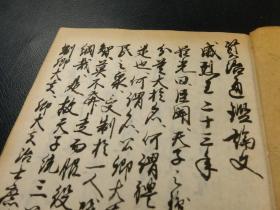 資治通鑑論文
威烈王二十三年
臣光曰臣聞天子之職
分莫大於名何謂禮
是也何謂名公卿大
民之衆受制於一人
智莫不奔走而服役
綱哉是故天子統三
制卿大夫卿大夫治士庶